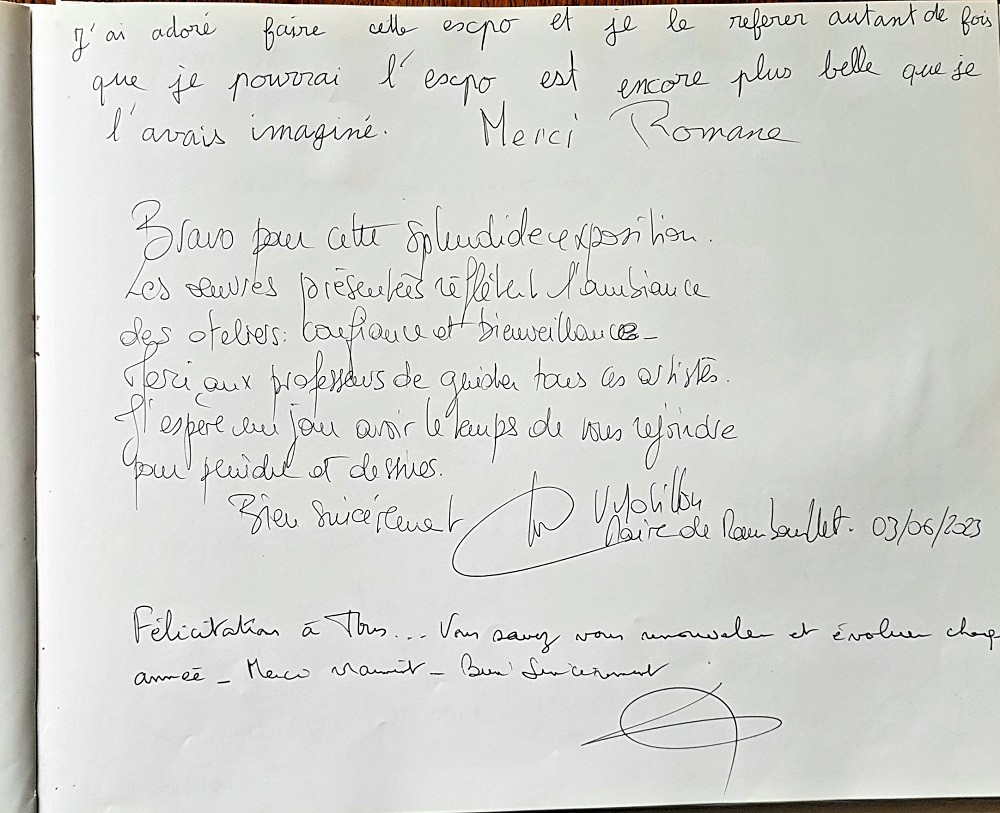 J'ai adoré faire cette escpo et je le referer autant de fois
que je pourrai l'escpo est encore plus belle que je
l'avais imaginé. Merci Romane
Bravo pour cette splendide exposition.
Les œuvres présentées réflètent l'ambiance
des ateliers : confiance et bienveillance -
Merci aux professeurs de guider tous ces artistes.
J'espère un jour avoir le temps de vous rejoindre
pour peindre et dessiner.
Bien sincèrement
V Matillon
Maire de Rambouillet. 03/06/2023
Félicitation à Tous... Vous savez vous renouveler et évoluer chaq
année - Merci vraiment - Bien Sincèrement